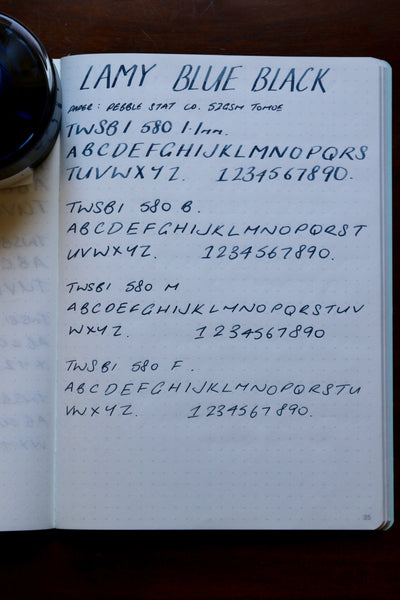 LAMY BLUE BLACK
PAPER: PEBBLE STAT CO. 52GSM TOMOE
TWSBI 580 1.1mm.
ABCDEFGHIJKLMNOPQRS
TUVWXYZ. 1234567890.
TWSBI 580 B.
ABCDEFGHIJKLMNOPQRST
UVWXYZ. 1234567890.
TWSBI 580 M
ABCDEFGHIJKLMNOPQRSTUV
WXYZ. 1234567890
TWSBI 580 F.
ABCDEFGHIJKLMNOPQRSTU
VWXYZ. 1234567890.